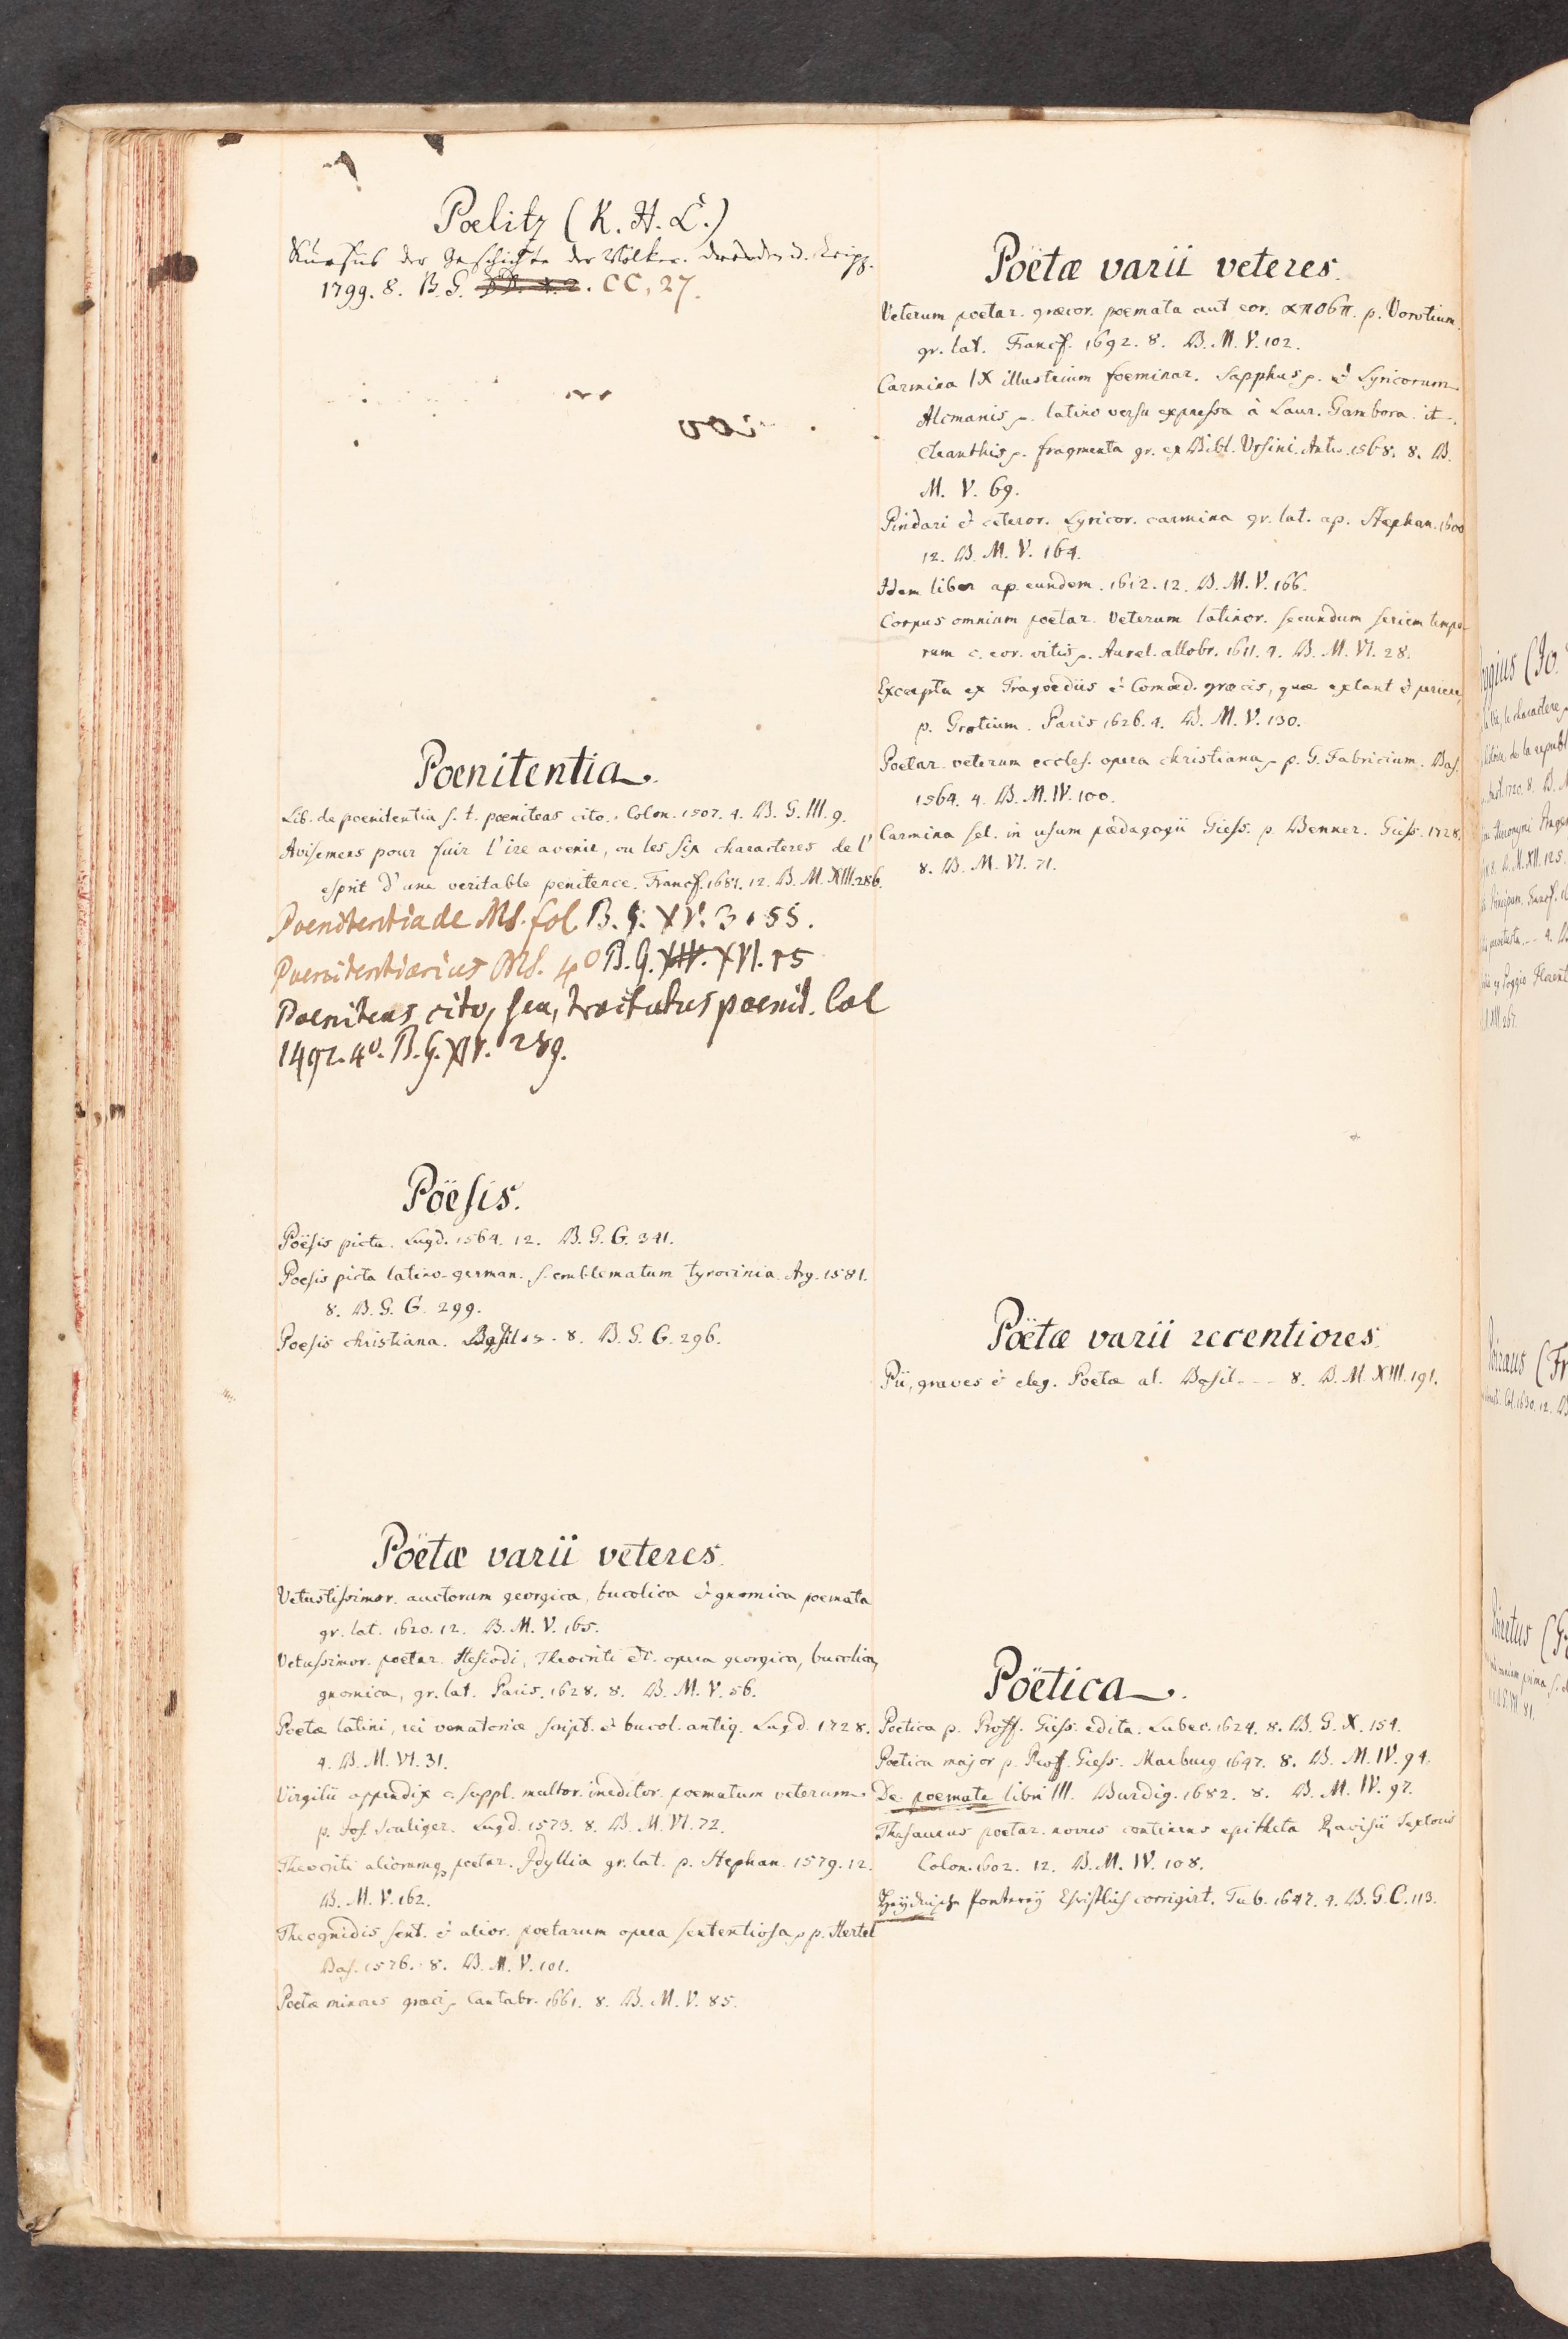 Poelitz (K. H. L.)
Kursus der Geschichte der Völker. Dresden u. Leipz.
1799. 8. B. G. CC, 27.
Poenitentia.
Lib. de poenitentia s. t. poeniteas cito. Colon. 1507. 4. B. G. III. 9.
Avisemens pour fuir l'ire avenir, ou les six characteres de l'
esprit d'une veritable penitence. Francf. 1681. 12. B. M. XIII. 286.
Poenitentia de Ms. fol B. G. XV.
Poenitentiarius Ms. 4° B. G. XVI. 15
Poeniteas cito, seu, tractatus poenit. Col
1492. 4°. B. G. XIV. 289.
Poësis.
Poësis picta. Lugd. 1564. 12. B. G. G. 341.
Poesis picta latino-german. s. emblematum tyrocinia. Arg. 1581.
8. B. G. G. 299.
Poesis christiana. Basil. 8. B. G. G. 296.
Poëtæ varii veteres.
Vetustissimor. auctorum georgica, bucolica & gnomica poemata
gr. lat. 1620. 12. B. M. V. 165.
Vetussimor. poetar. Hesiodi, Theocriti &c. opera georgica, bucolica,
gnomica, gr. lat. Paris. 1628. 8. B. M. V. 56.
Poetæ latini, rei venatoriæ script. & bucol. antiq. Lugd. 1728.
4. B. M. VI. 31.
Virgilii appendix c. suppl. multor. ineditor. poematum veterum.
p. Jos. Scaliger. Lugd. 1573. 8. B. M. VI. 72.
Theocriti aliorumq poetar. Idyllia gr. lat. p. Stephan. 1579. 12.
B. M. V. 162.
Theognidis sent. & alior. poetarum opera sententiosa p. Hertel
Bas. 1576. 8. B. M. V. 101.
Poetæ minores græci Cantabr. 1661. 8. B. M. V. 85.
Poëtæ varii veteres.
Veterum poetar. græcor. poemata aut eor. p. Vorstium.
gr. lat. Francf. 1692. 8. B. M. V. 102.
Carmina IX illustrium foeminar. Sapphus & Lyricorum
Alcmanis latino versu expressa à Laur. Gambora. it.
Cleanthis fragmenta gr. ex Bibl. Ursini. Antv. 1568. 8. B.
M. V. 69.
Pindari & ceteror. Lyricor. carmina gr. lat. ap. Stephan. 1600
12. B. M. V. 164.
Idem liber ap. eundem. 1612. 12. B. M. V. 166.
Corpus omnium poetar. veterum latinor. secundum seriem tempo-
rum c. eor. vitis Aurel. allobr. 1611. 4. B. M. VI. 28.
Excerpta ex Tragoediis & Comoed. græcis, quæ extant &
p. Grotium. Paris 1626. 4. B. M. V. 130.
Poetar. veterum eccles. opera christiana p. G. Fabricium. Bas.
1564. 4. B. M. IV. 100.
Carmina sel. in usum pædagogii Giess. p. Benner. Giess. 1728.
8. B. M. VI. 71.
Poëtæ varii recentiores.
Pii, graves & eleg. Poetæ al. Basil - - - 8. B. M. XIII. 191.
Poëtica.
Poetica p. Proff. Giess. edita. Lubec. 1624. 8. B. G. X. 154.
Poetica major p. Prof. Giess. Marburg 1647. 8. B. M. IV. 94.
De poemate libri III. Burdig. 1682. 8. B. M. IV. 97.
Thesaurus poetar. novus continens epitheta Ravisii Textoris
Colon. 1602. 12. B. M. IV. 108.
Christlich corrigirt. Tub. 1647. 4. B. G. C. 113.